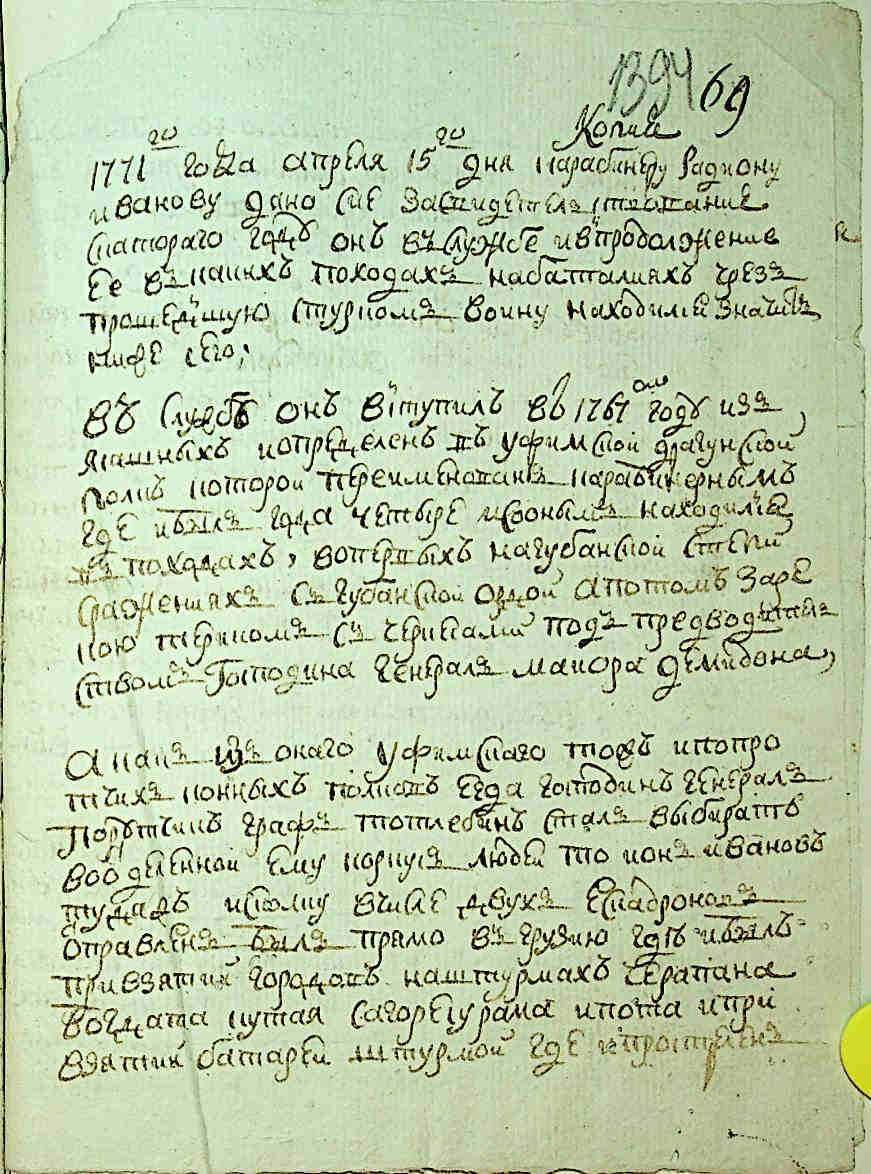 1394 69
Копие
1771 го года апреля 15 го дня карабинеру Радиону
иванову дано сие Засвидетелствование
скаторого году онъ въ службе ивпродолжение
Ее въ какихъ походахъ набаталияхъ чрезъ
прошедшую стуркомъ воину находился значитъ
ниже сего;
Въ службѣ онъ вступилъ во 1767 ом году изъ
ямшныхъ иопределенъ въ уфимской драгунской
полкъ которои переименованъ карабинернымъ
где ибылъ года четыре исоонымъ находился
въ походахъ, вопервыхъ накубанской степи
сражениях съ кубанской ордой апотомъ Заре
кою терикомъ съ черкесами подъ предводитель
ствомъ Господина Генералъ маиора демидова,
А какъ изъ онаго уфимскаго такъ иизпро
тчихъ конныхъ полковъ Егда господинъ генералъ
Порутчикъ графъ тотлебинъ сталъ выбирать
во деленной Ему корпусъ людей то ионъ ивановъ
туда въ числе двухъ Ескадроновъ
отправленъ былъ прямо въ грузию гдѣ ибылъ
привзятии городовъ наштурмахъ Шерапана
Богдата кутая ипота ипри
взятии батареи штурмой где ипрострелен